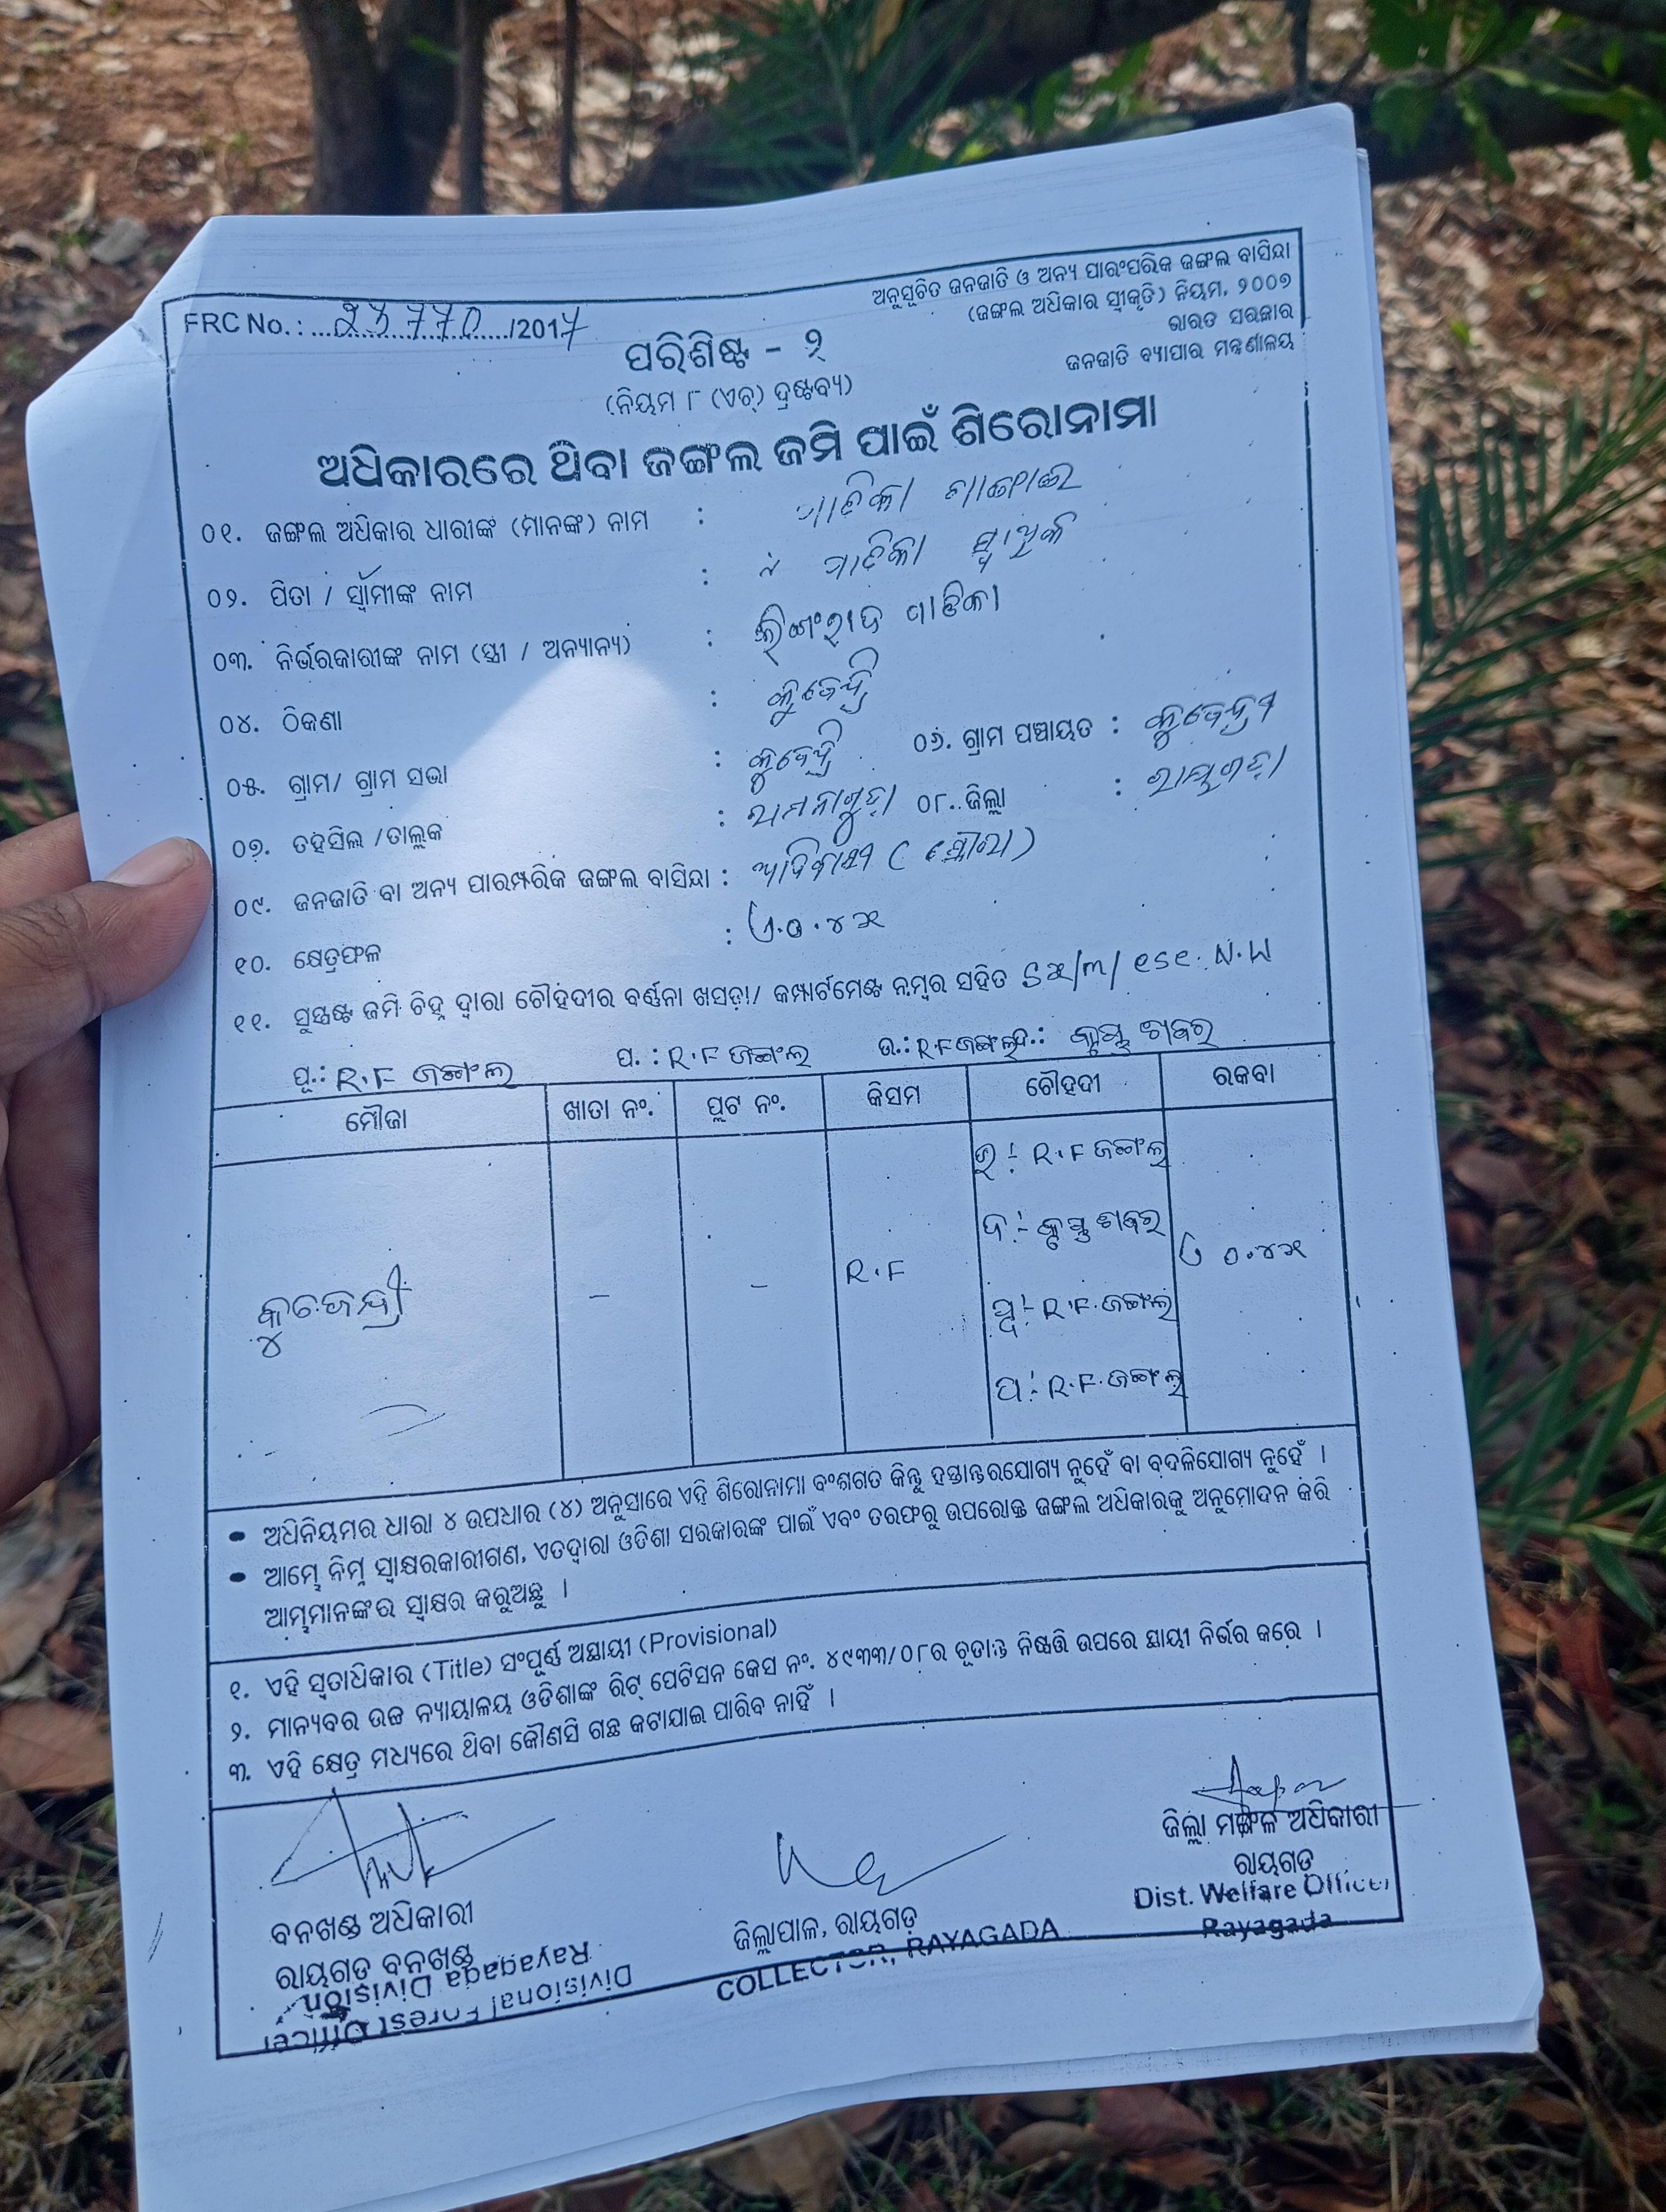 ଅନୁସୂଚିତ ଜନଜାତି ଓ ଅନ୍ୟ ପାରଂପରିକ ଜଙ୍ଗଲ ବାସିନ୍ଦା
(ଜଙ୍ଗଲ ଅଧିକାର ସ୍ୱୀକୃତି) ନିୟମ, ୨୦୦୭
ଭାରତ ସରକାର
ଜନଜାତି ବ୍ୟାପାର ମନ୍ତ୍ରଣାଳୟ
FRC No. : ............/2017
ପରିଶିଷ୍ଟ - ୨
(ନିୟମ ୮ (ଏଚ୍) ଦ୍ରଷ୍ଟବ୍ୟ)
ଅଧିକାରରେ ଥିବା ଜଙ୍ଗଲ ଜମି ପାଇଁ ଶିରୋନାମା
୦୧. ଜଙ୍ଗଲ ଅଧିକାର ଧାରୀଙ୍କ (ମାନଙ୍କ) ନାମ :
୦୨. ପିତା / ସ୍ୱାମୀଙ୍କ ନାମ :
୦୩. ନିର୍ଭରକାରୀଙ୍କ ନାମ (ସ୍ତ୍ରୀ / ଅନ୍ୟାନ୍ୟ) :
୦୪. ଠିକଣା : କୁଜେନ୍ଦ୍ରି
୦୫. ଗ୍ରାମ/ ଗ୍ରାମ ସଭା : କୁଜେନ୍ଦ୍ରି ୦୬. ଗ୍ରାମ ପଞ୍ଚାୟତ : କୁଜେନ୍ଦ୍ରୀ
୦୭. ତହସିଲ /ତାଲୁକ : ୦୮. ଜିଲ୍ଲା : ରାୟଗଡ଼ା
୦୯. ଜନଜାତି ବା ଅନ୍ୟ ପାରମ୍ପରିକ ଜଙ୍ଗଲ ବାସିନ୍ଦା : ଆଦିବାସୀ (ସୌରା)
୧୦. କ୍ଷେତ୍ରଫଳ :
୧୧. ସୁସ୍ପଷ୍ଟ ଜମି ଚିହ୍ନ ଦ୍ୱାରା ଚୌହଦୀର ବର୍ଣ୍ଣନା ଖସଡ଼ା/ କମ୍ପାର୍ଟମେଣ୍ଟ ନମ୍ବର ସହିତ N.W
ପୂ.: R.F ଜଙ୍ଗଲ ପ. : R.F ଜଙ୍ଗଲ ଉ.: R.F ଜଙ୍ଗଲ ଦ.:
ମୌଜା ଖାତା ନଂ. ପ୍ଲଟ ନଂ. କିସମ ଚୌହଦୀ ରକବା
ଉ:- R.F ଜଙ୍ଗଲ
ଦ:-
କୁଜେନ୍ଦ୍ରୀ - - R.F
ପୂ:- R.F. ଜଙ୍ଗଲ
ପ:- R.F. ଜଙ୍ଗଲ
• ଅଧିନିୟମର ଧାରା ୪ ଉପଧାର (୪) ଅନୁସାରେ ଏହି ଶିରୋନାମା ବଂଶଗତ କିନ୍ତୁ ହସ୍ତାନ୍ତରଯୋଗ୍ୟ ନୁହେଁ ବା ବଦଳିଯୋଗ୍ୟ ନୁହେଁ ।
• ଆମ୍ଭେ ନିମ୍ନ ସ୍ୱାକ୍ଷରକାରୀଗଣ, ଏତଦ୍ୱାରା ଓଡିଶା ସରକାରଙ୍କ ପାଇଁ ଏବଂ ତରଫରୁ ଉପରୋକ୍ତ ଜଙ୍ଗଲ ଅଧିକାରକୁ ଅନୁମୋଦନ କରି
ଆମ୍ଭମାନଙ୍କର ସ୍ୱାକ୍ଷର କରୁଅଛୁ ।
୧. ଏହି ସ୍ୱତାଧିକାର (Title) ସଂପୂର୍ଣ୍ଣ ଅସ୍ଥାୟୀ (Provisional)
୨. ମାନ୍ୟବର ଉଚ୍ଚ ନ୍ୟାୟାଳୟ ଓଡିଶାଙ୍କ ରିଟ୍ ପେଟିସନ କେସ ନଂ. ୪୯୩୩/୦୮ର ଚୂଡାନ୍ତ ନିଷ୍ପତ୍ତି ଉପରେ ସ୍ଥାୟୀ ନିର୍ଭର କରେ ।
୩. ଏହି କ୍ଷେତ୍ର ମଧ୍ୟରେ ଥିବା କୌଣସି ଗଛ କଟାଯାଇ ପାରିବ ନାହିଁ ।
ବନଖଣ୍ଡ ଅଧିକାରୀ
ରାୟଗଡ଼ ବନଖଣ୍ଡ
Divisional Forest Officer
Rayagada Division
ଜିଲ୍ଲାପାଳ, ରାୟଗଡ଼
COLLECTOR, RAYAGADA
ଜିଲ୍ଲା ମଙ୍ଗଳ ଅଧିକାରୀ
ରାୟଗଡ଼
Dist. Welfare Officer
Rayagada